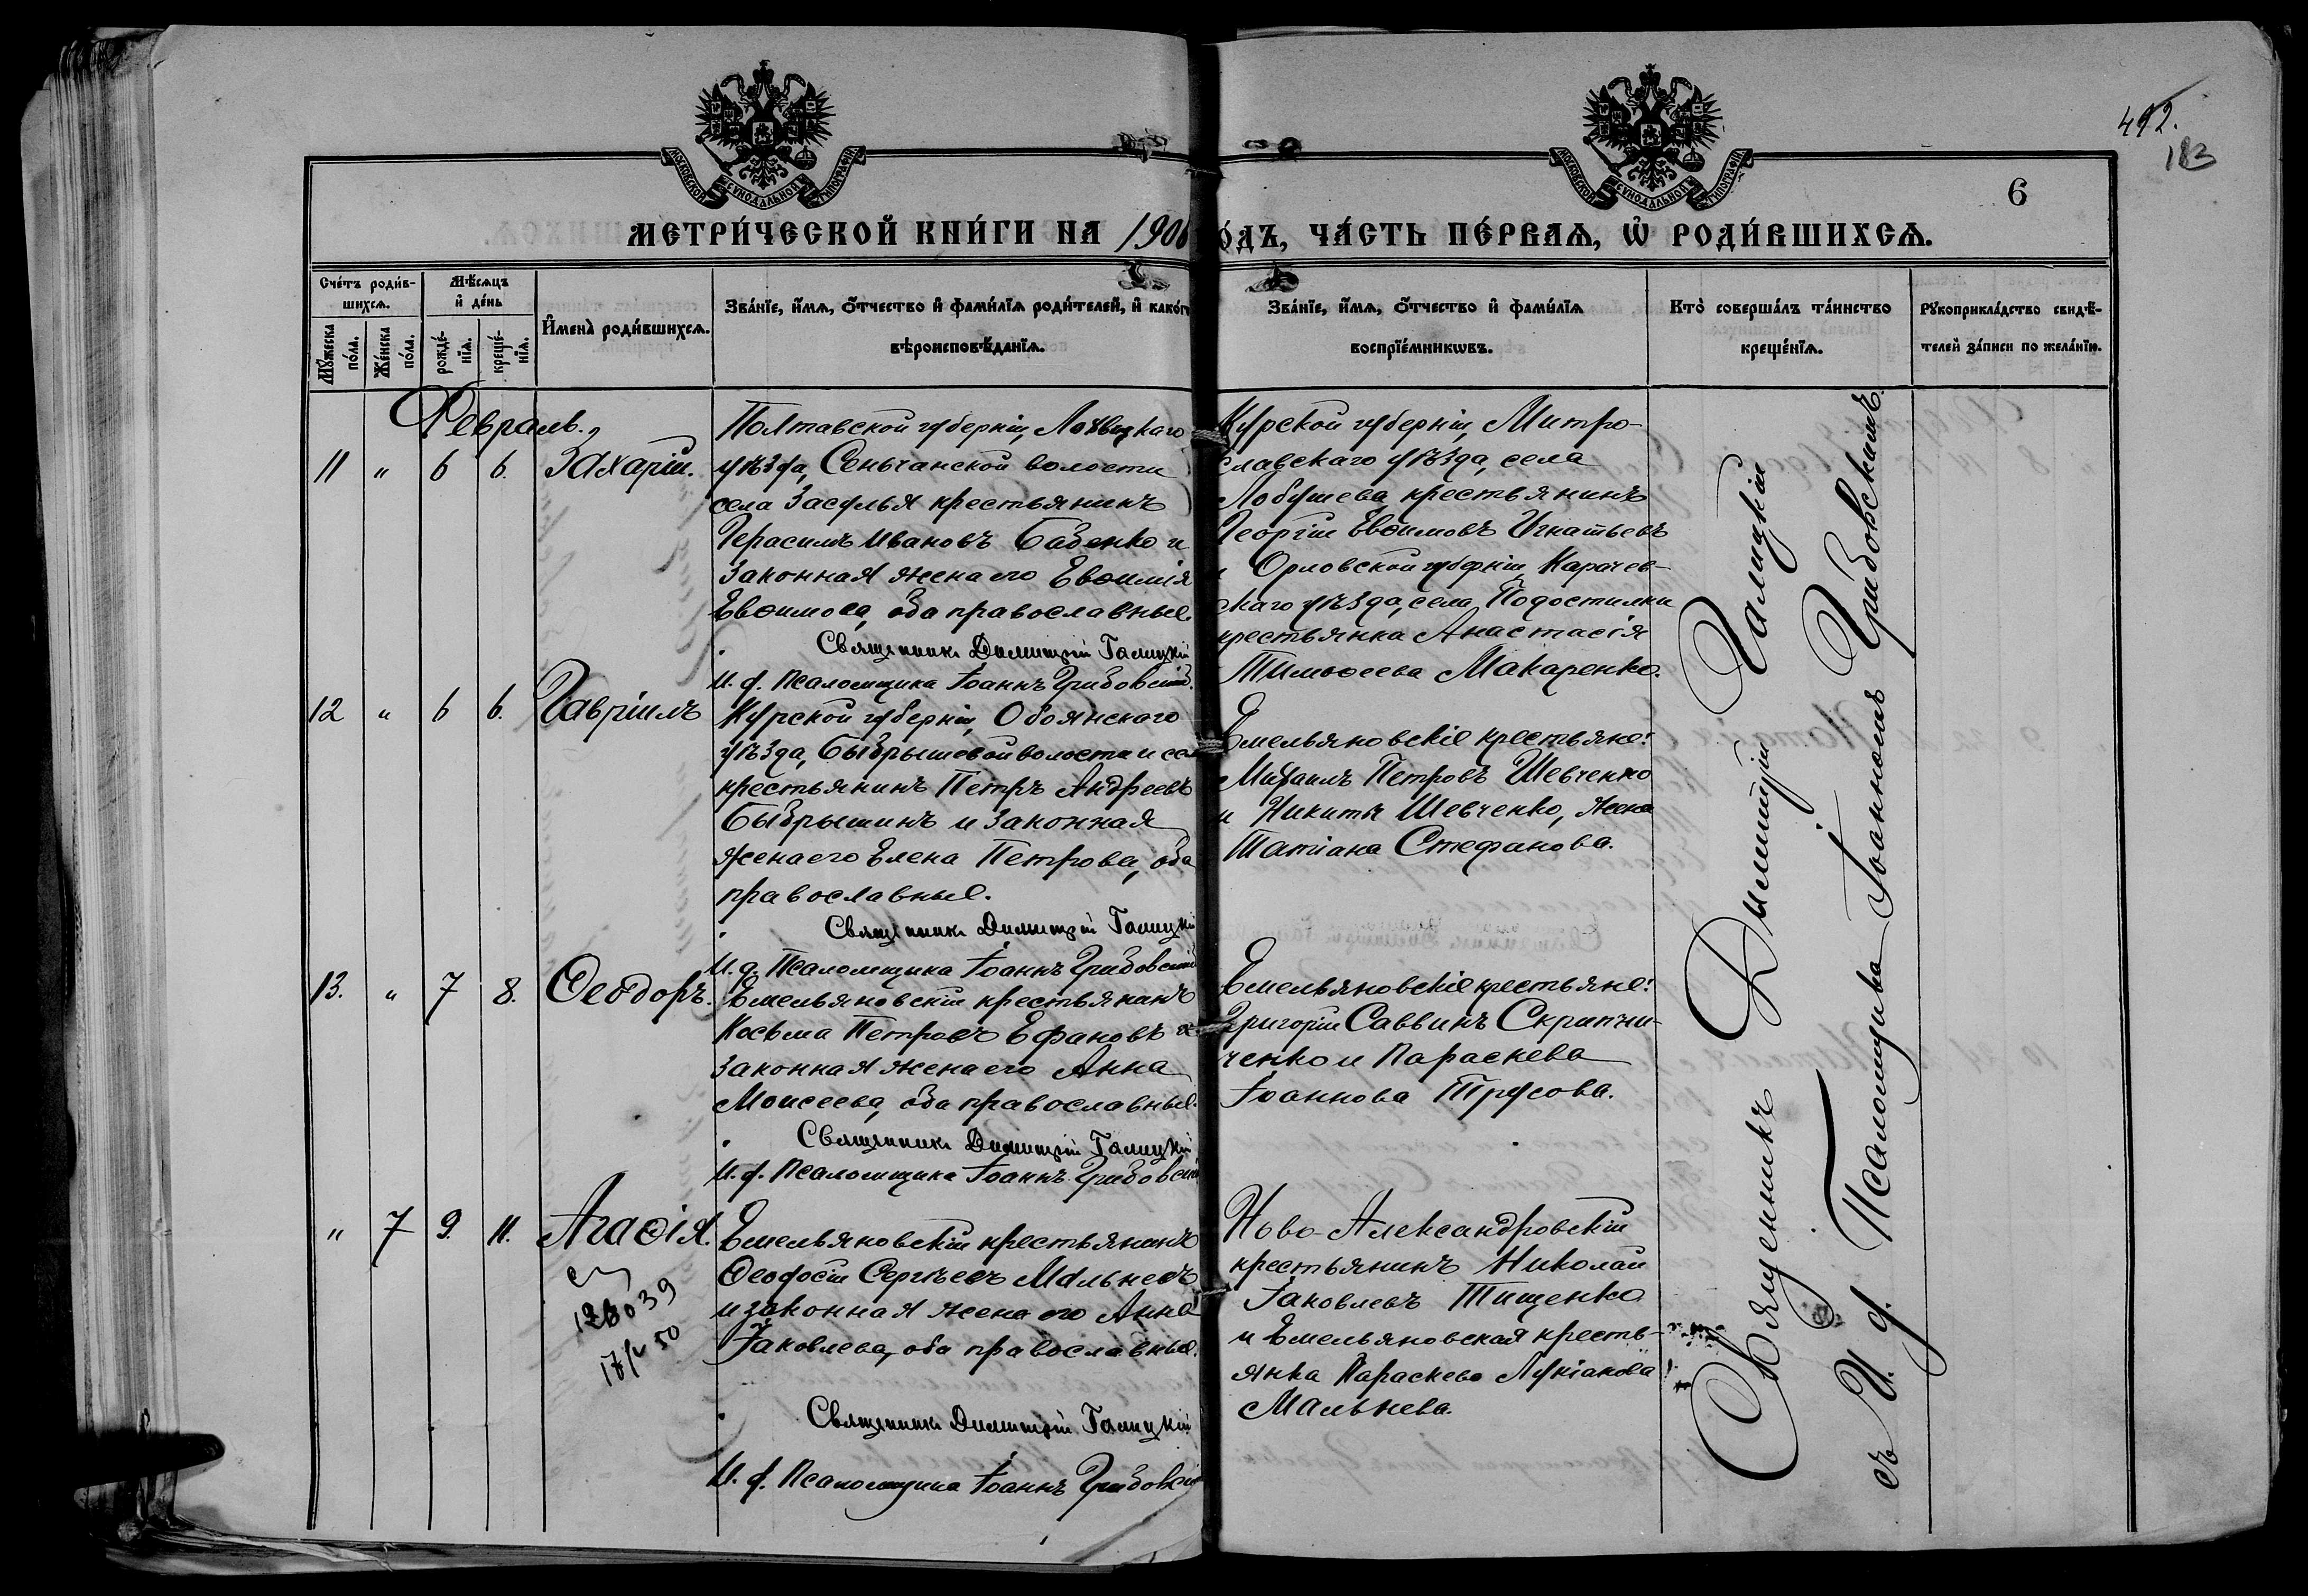 492.
183
МОСКОВСКОЙ СѴНОДАЛЬНОЙ ТИПОГРАФІИ
МОСКОВСКОЙ СѴНОДАЛЬНОЙ ТИПОГРАФІИ
6
МЕТРИ́ЧЕСКОЙ КНИ́ГИ НА 1906
О́ДЪ, ЧА́СТЬ ПЕ́РВАѦ, Ѡ РОДИ́ВШИХСѦ.
Сче́тъ роди́в-
шихсѧ.
Мꙋ́жеска по́ла.
Же́нска по́ла.
Мѣ́сѧцъ
и҆ де́нь
рожде́-
нїѧ.
креще́-
нїѧ.
И҆мена̀ роди́вшихсѧ.
Зва́нїе, и҆́мѧ, ѻ҆́тчество и҆ фами́лїѧ роди́телей, и҆ како́гѡ
вѣроисповѣ́данїѧ.
Зва́нїе, и҆́мѧ, ѻ҆́тчество и҆ фами́лїѧ
воспрїе́мникѡвъ.
Кто̀ соверша́лъ та́инство
креще́нїѧ.
Рꙋкоприкла́дство свидѣ́-
телей за́писи по жела́нїю.
Февраль.
11 " 6 6. Захарій.
Полтавской губерніи, Лохвицкаго
уѣзда, Сеньчанской волости
села Засулья крестьянинъ
Герасимъ Ивановъ Бабенко и
законная жена его Евѳимія
Евѳимова, оба православные.
Священникъ Димитрій Галицкій
И. д. Псаломщика Іоаннъ Грибовскій.
Курской губерніи, Митро-
славскаго уѣзда, села
Лобушева крестьянинъ
Георгій Евѳимовъ Игнатьевъ
и Орловской губерніи Карачев-
скаго уѣзда, села Подостилки
крестьянка Анастасія
Тимоѳеева Макаренко.
12 " 6 6. Гавріилъ
Курской губерніи, Обоянскаго
уѣзда, волости и
крестьянинъ Петръ Андреевъ
и законная
жена его Елена Петрова, оба
православные.
Священникъ Димитрій Галицкій
И. д. Псаломщика Іоаннъ Грибовскій
Емельяновскіе крестьяне:
Михаилъ Петровъ Шевченко
и Никиты Шевченко, жена
Татіана Стефанова.
13. " 7 8. Ѳеодоръ.
Емельяновскій крестьянинъ
Косьма Петровъ Ефановъ и
законная жена его Анна
Моисеева, оба православные.
Священникъ Димитрій Галицкій
И. д. Псаломщика Іоаннъ Грибовскій
Емельяновскіе крестьяне:
Григорій Саввинъ Скрипни-
ченко и Параскева
Іоаннова Трусова.
" 7 9. 11. Агаѳія.
17/V 50
Емельяновскій крестьянинъ
Ѳеодосій Сергѣевъ Мальневъ
и законная жена его Анна
Іаковлева, оба православные.
Священникъ Димитрій Галицкій
И. д. Псаломщика Іоаннъ Грибовскій
Ново-Александровскій
крестьянинъ Николай
Іаковлевъ Тищенко
и Емельяновская кресть-
янка Параскева Лукіанова
Мальнева.
Священникъ Димитрій Галицкій
съ И. д. Псаломщика Іоанномъ Грибовскимъ.